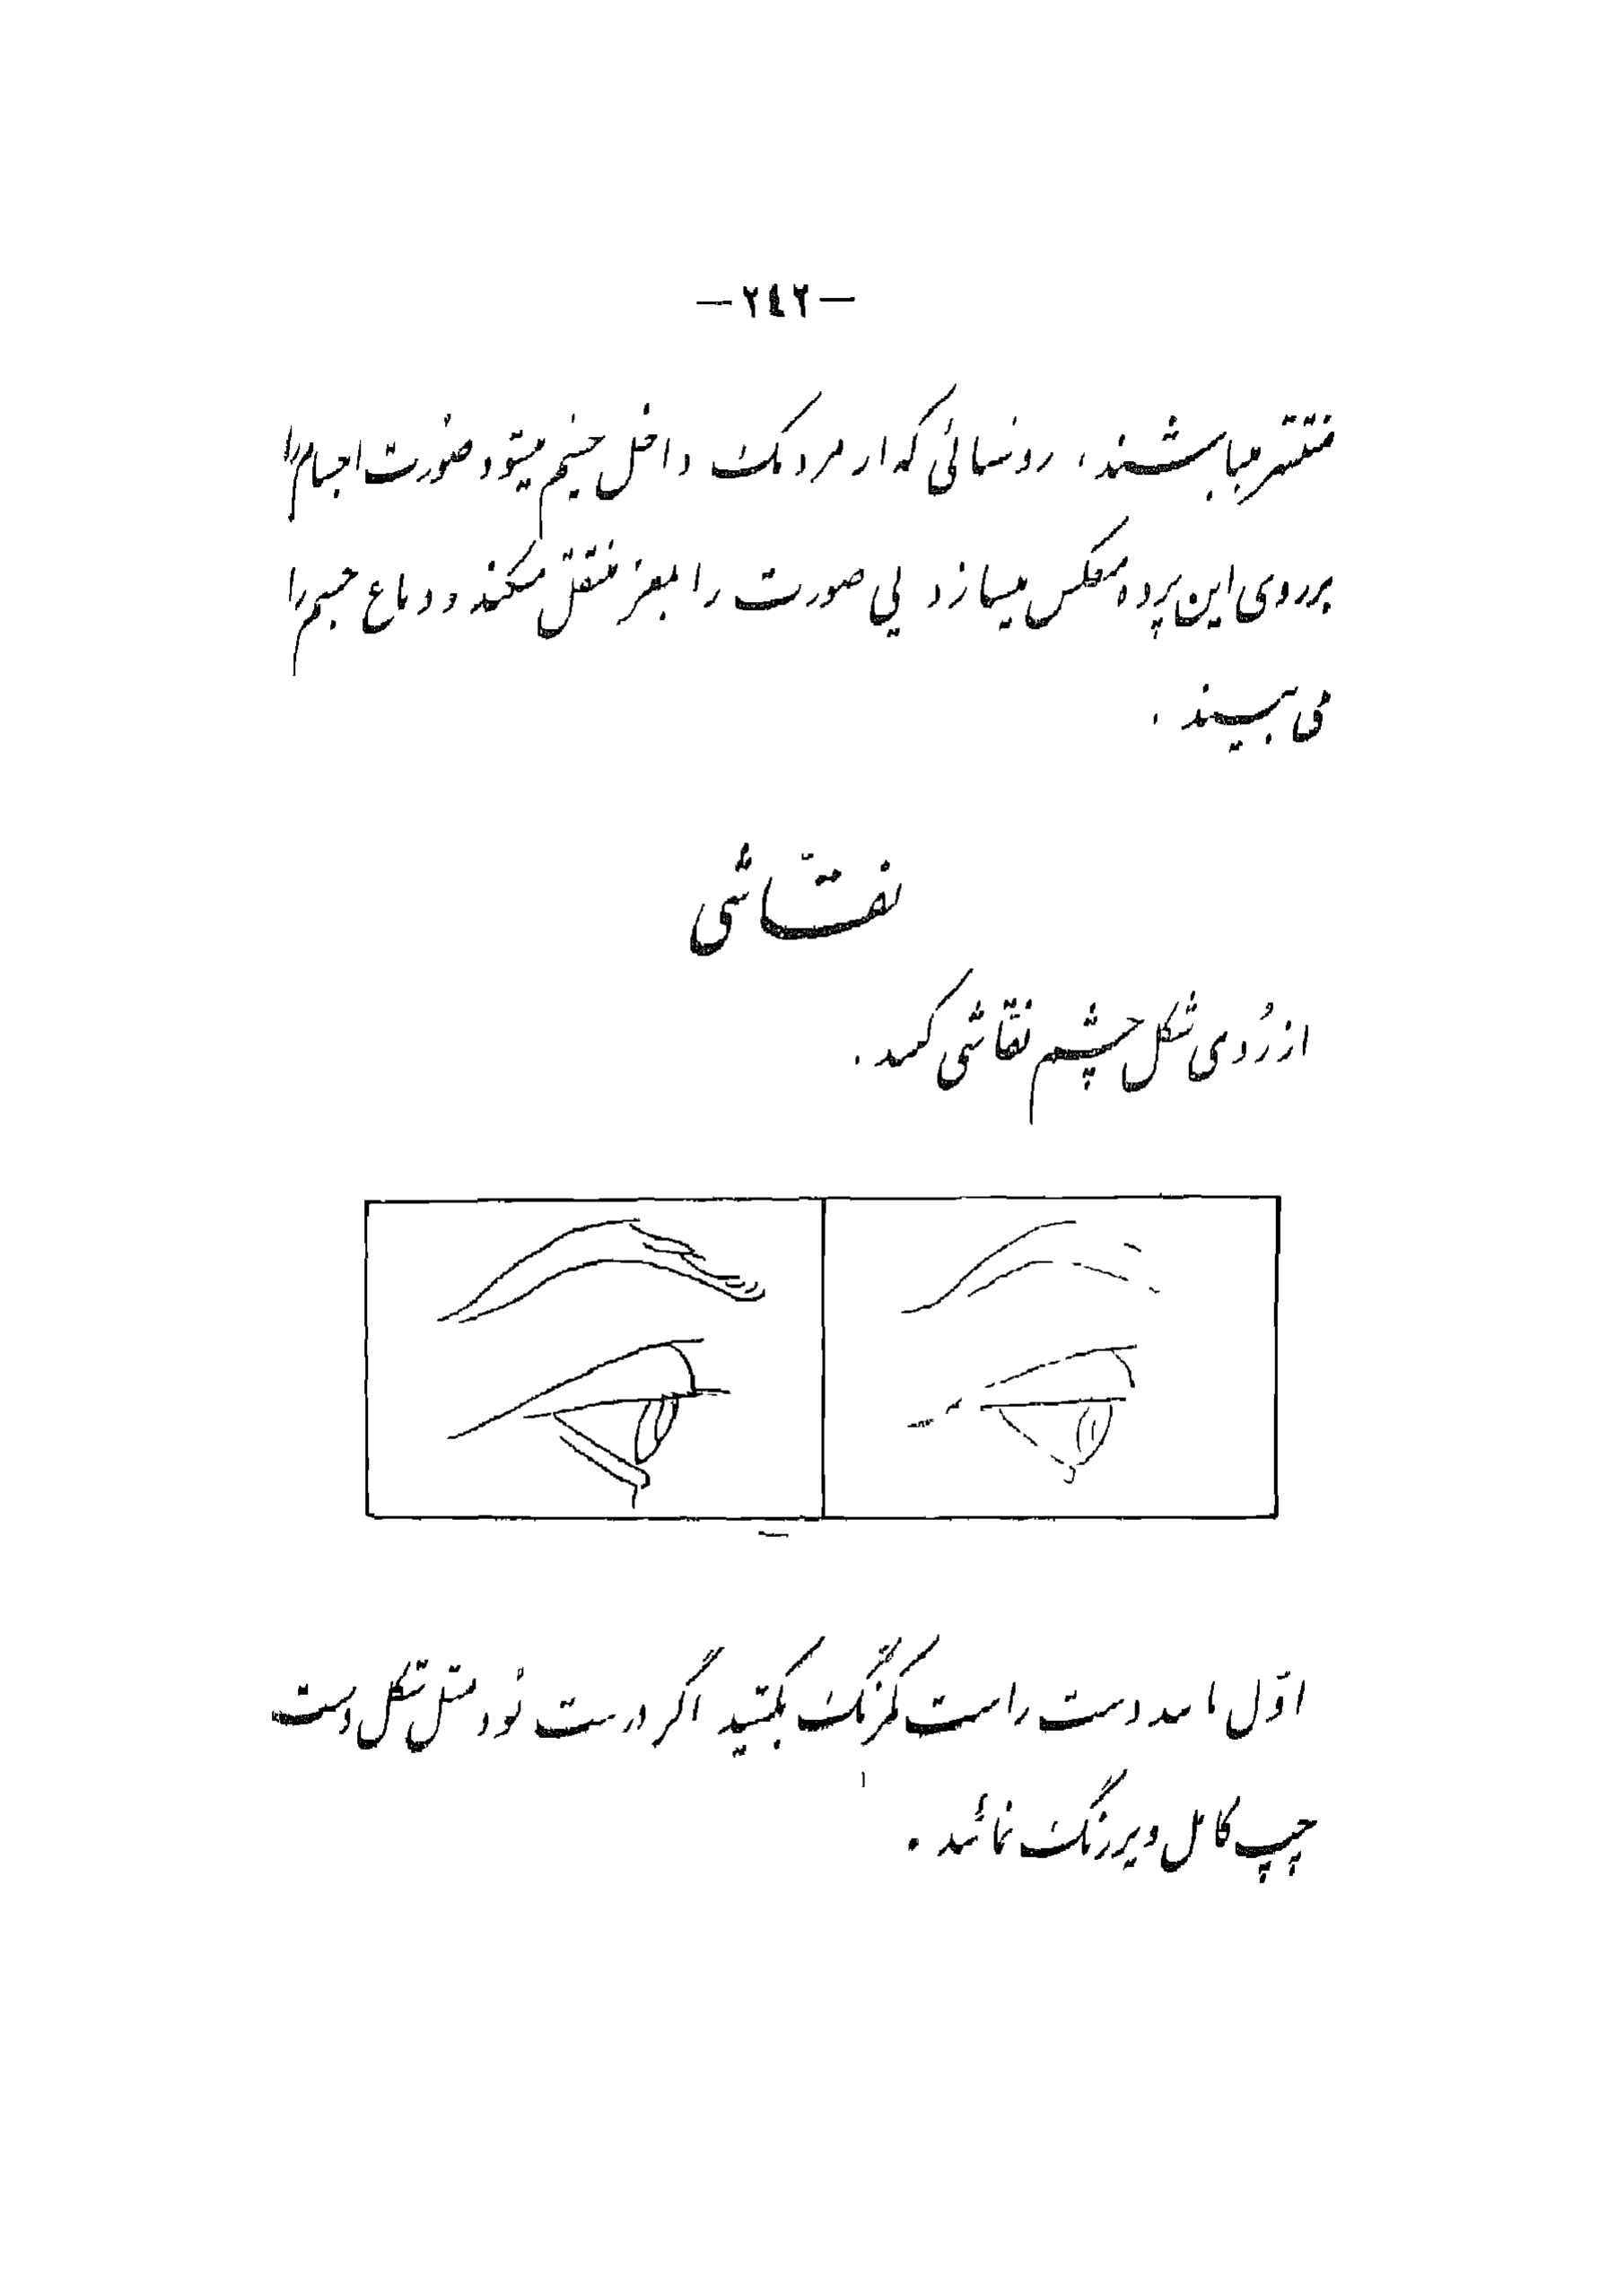 —٢٤٢—
منتشر میباشند، روشنائی که از مردمک داخل چشم میشود صورت اجسام را
بر روی این پرده منعکس میسازد پی صورت را بمغز منتقل میکند و دماغ جسم را
می بیند .
نقّاشی
از رُوی شکل چشم نقّاشی کنید .
اوّل مانند دست راست کمرنگ بکشید اگر درست شود مثل شکل دست
چپ کامل و پررنگ نمائید .